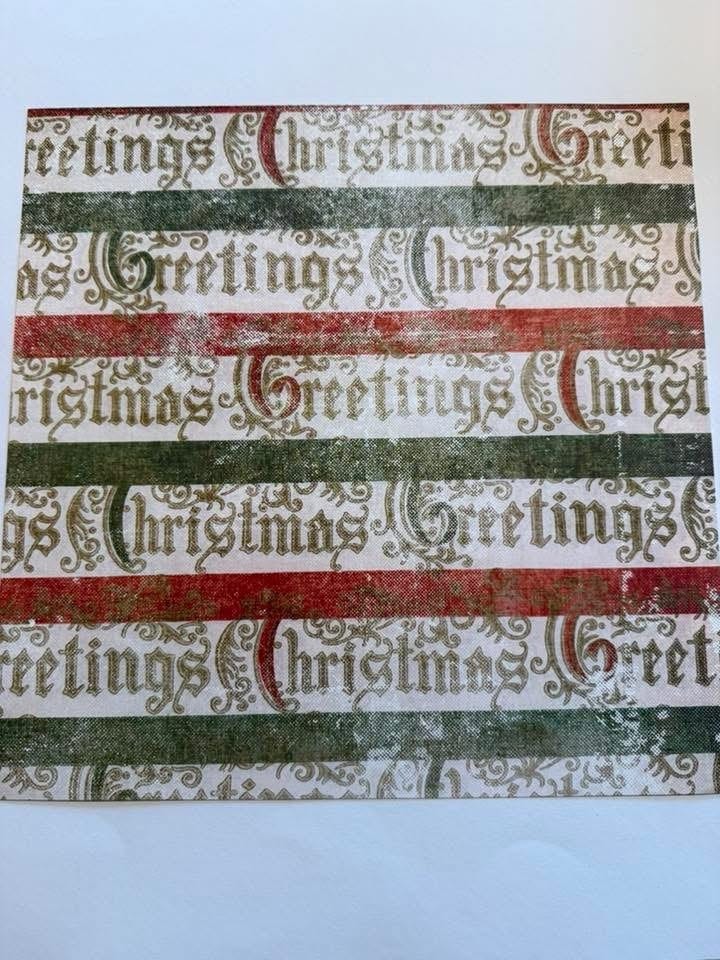 reetings Christmas Greeti
as Greetings Christmas
ristmas Greetings Christ
gs Christmas Greetings
reetings Christmas Greet